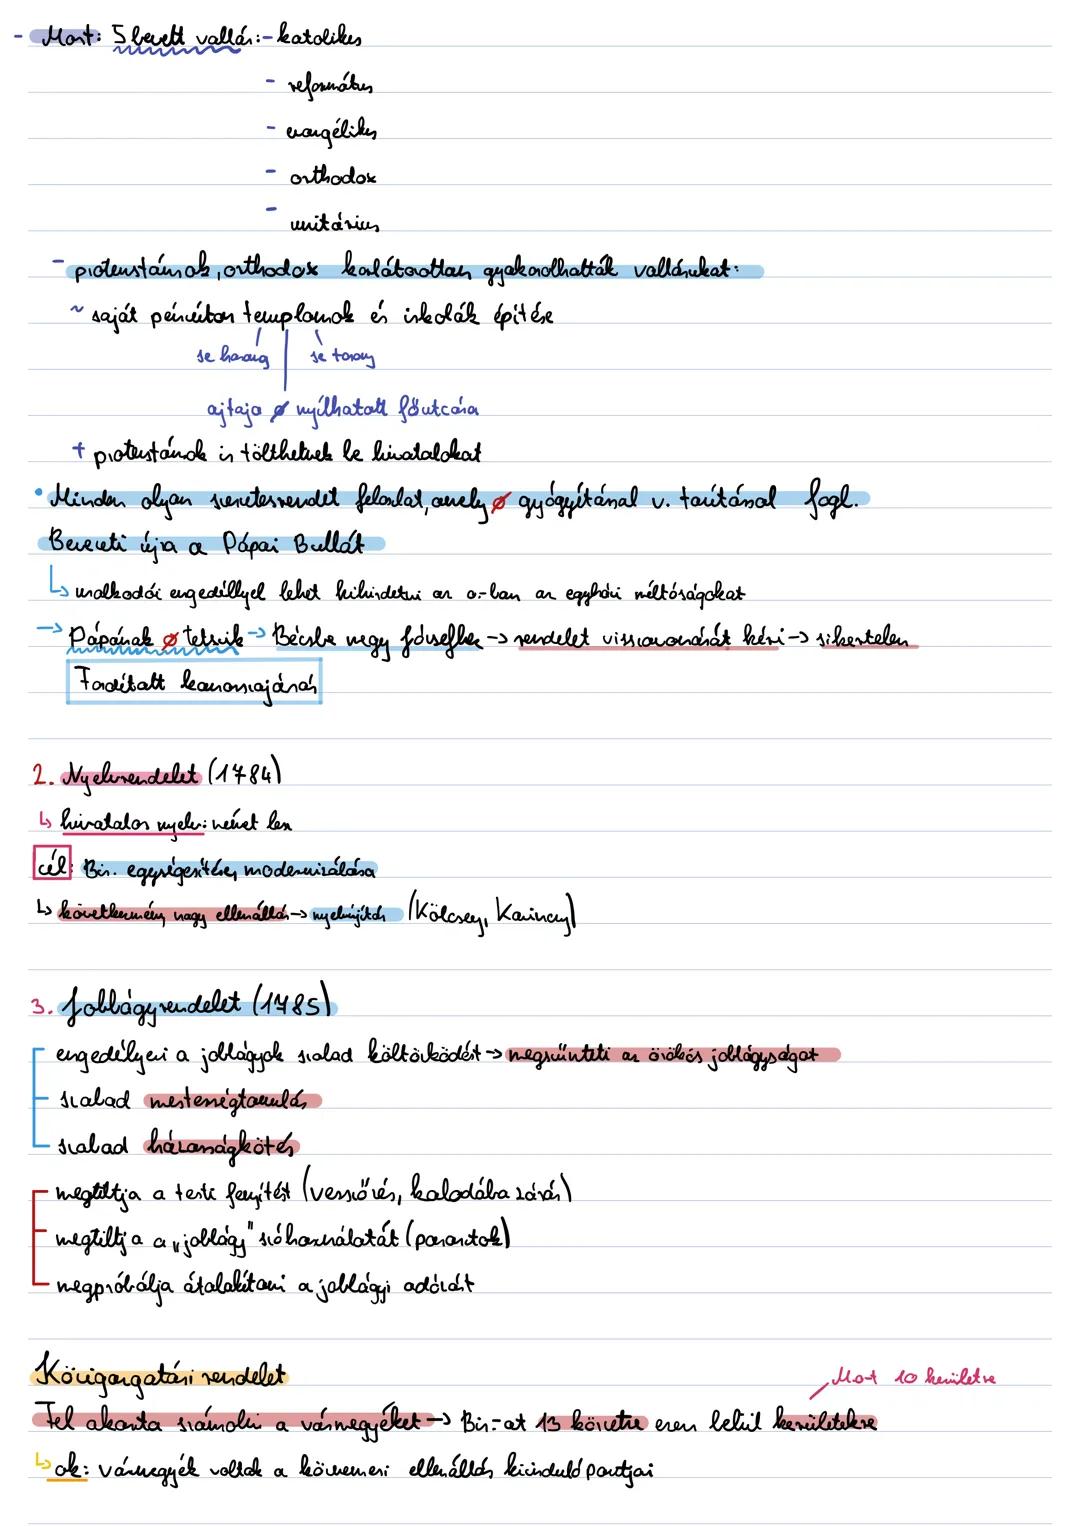 - Most: 5 bevett vallás: - katolikus
- református
- evangélikus
- orthodox
- unitárius
- protenstánsok, orthodox korlátozottan gyakorolhatták vallásukat:
~ saját pénzükön templomok és iskolák építése
se harang se torony
ajtaja ø nyílhatott főutcára
+ protestánsok is tölthetnek be hivatalokat
• Minden olyan szerzetesrendet feloszlat, amely ø gyógyítással v. tanítással fogl.
Bevezeti újra a Pápai Bullát
↳ uralkodói engedéllyel lehet kihirdetni az o.-ban az egyházi méltóságokat
→ Pápának ø tetszik → Bécsbe megy Józsefhez → rendelet visszavonását kéri → sikertelen
Fordított kanosszajárás
2. Nyelvrendelet (1784)
↳ hivatalos nyelv: német lesz
cél: Bir. egységesítése, modernizálása
↳ következmény nagy ellenállás → nyelvújítás (Kölcsey, Kazinczy)
3. Jobbágyrendelet (1785)
engedélyezi a jobbágyok szabad költözködést → megszünteti az örökös jobbágyságot
szabad mesterségtanulás
szabad házasságkötés
megtiltja a testi fenyítést (vesszőzés, kalodába zárás)
megtiltja a „jobbágy" szóhasználatát (parasztok)
megpróbálja átalakítani a jobbágyi adózást
Közigazgatási rendelet
Most 10 kerületre
Fel akarta számolni a vármegyéket → Bir.-at 13 körzetre ezen belül kerületekre
↳ ok: vármegyék voltak a köznemesi ellenállás kiinduló pontjai